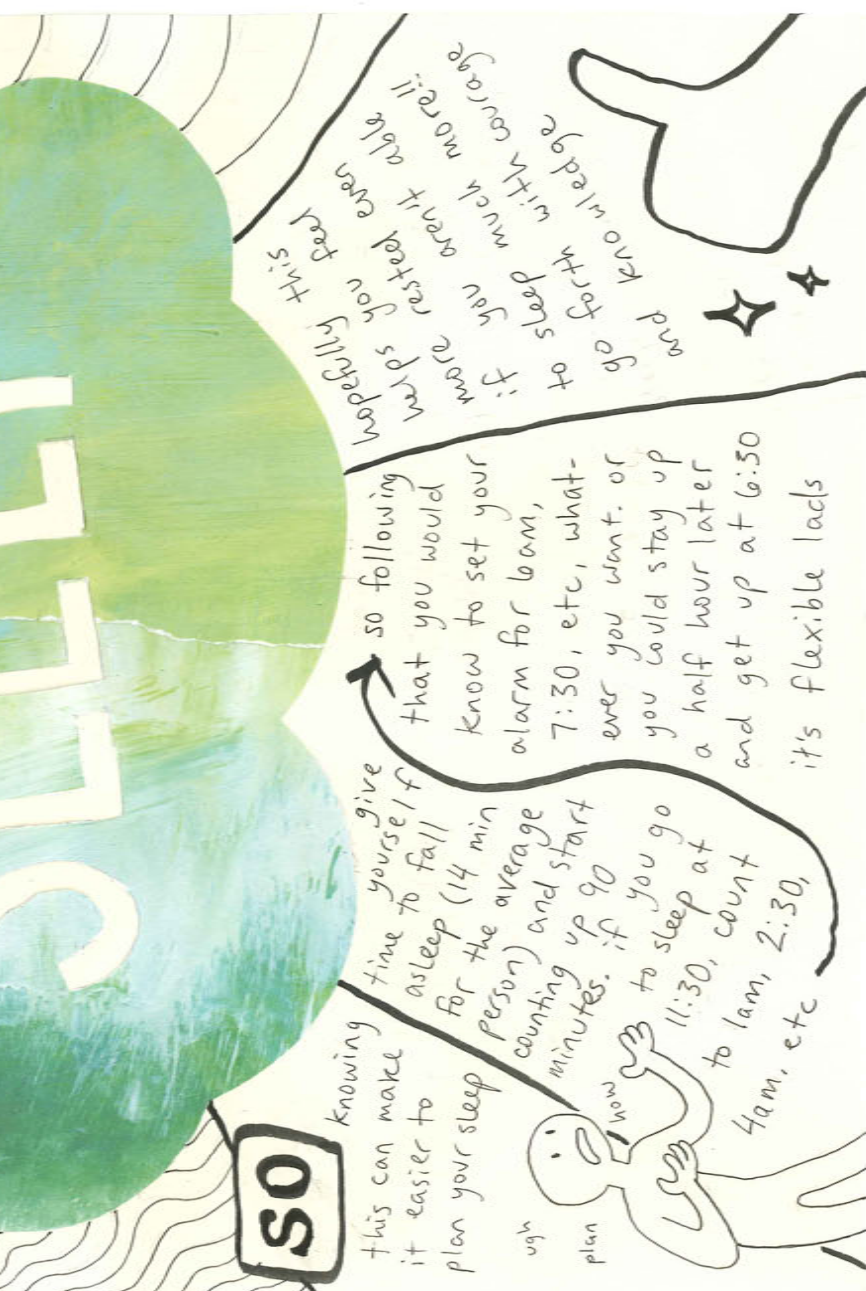 SO
knowing
this can make
it easier to
plan your sleep
ugh
plan
how
give
yourself
time to fall
asleep (14 min
for the average
person) and start
counting up 90
minutes. if you go
to sleep at
11:30, count
to 1am, 2:30,
4am, etc
so following
that you would
know to set your
alarm for 6am,
7:30, etc, what-
ever you want. or
you could stay up
a half hour later
and get up at 6:30
it's flexible lads
hopefully this
helps you feel
more rested even
if you aren't able
to sleep much more!!
go forth with courage
and knowledge